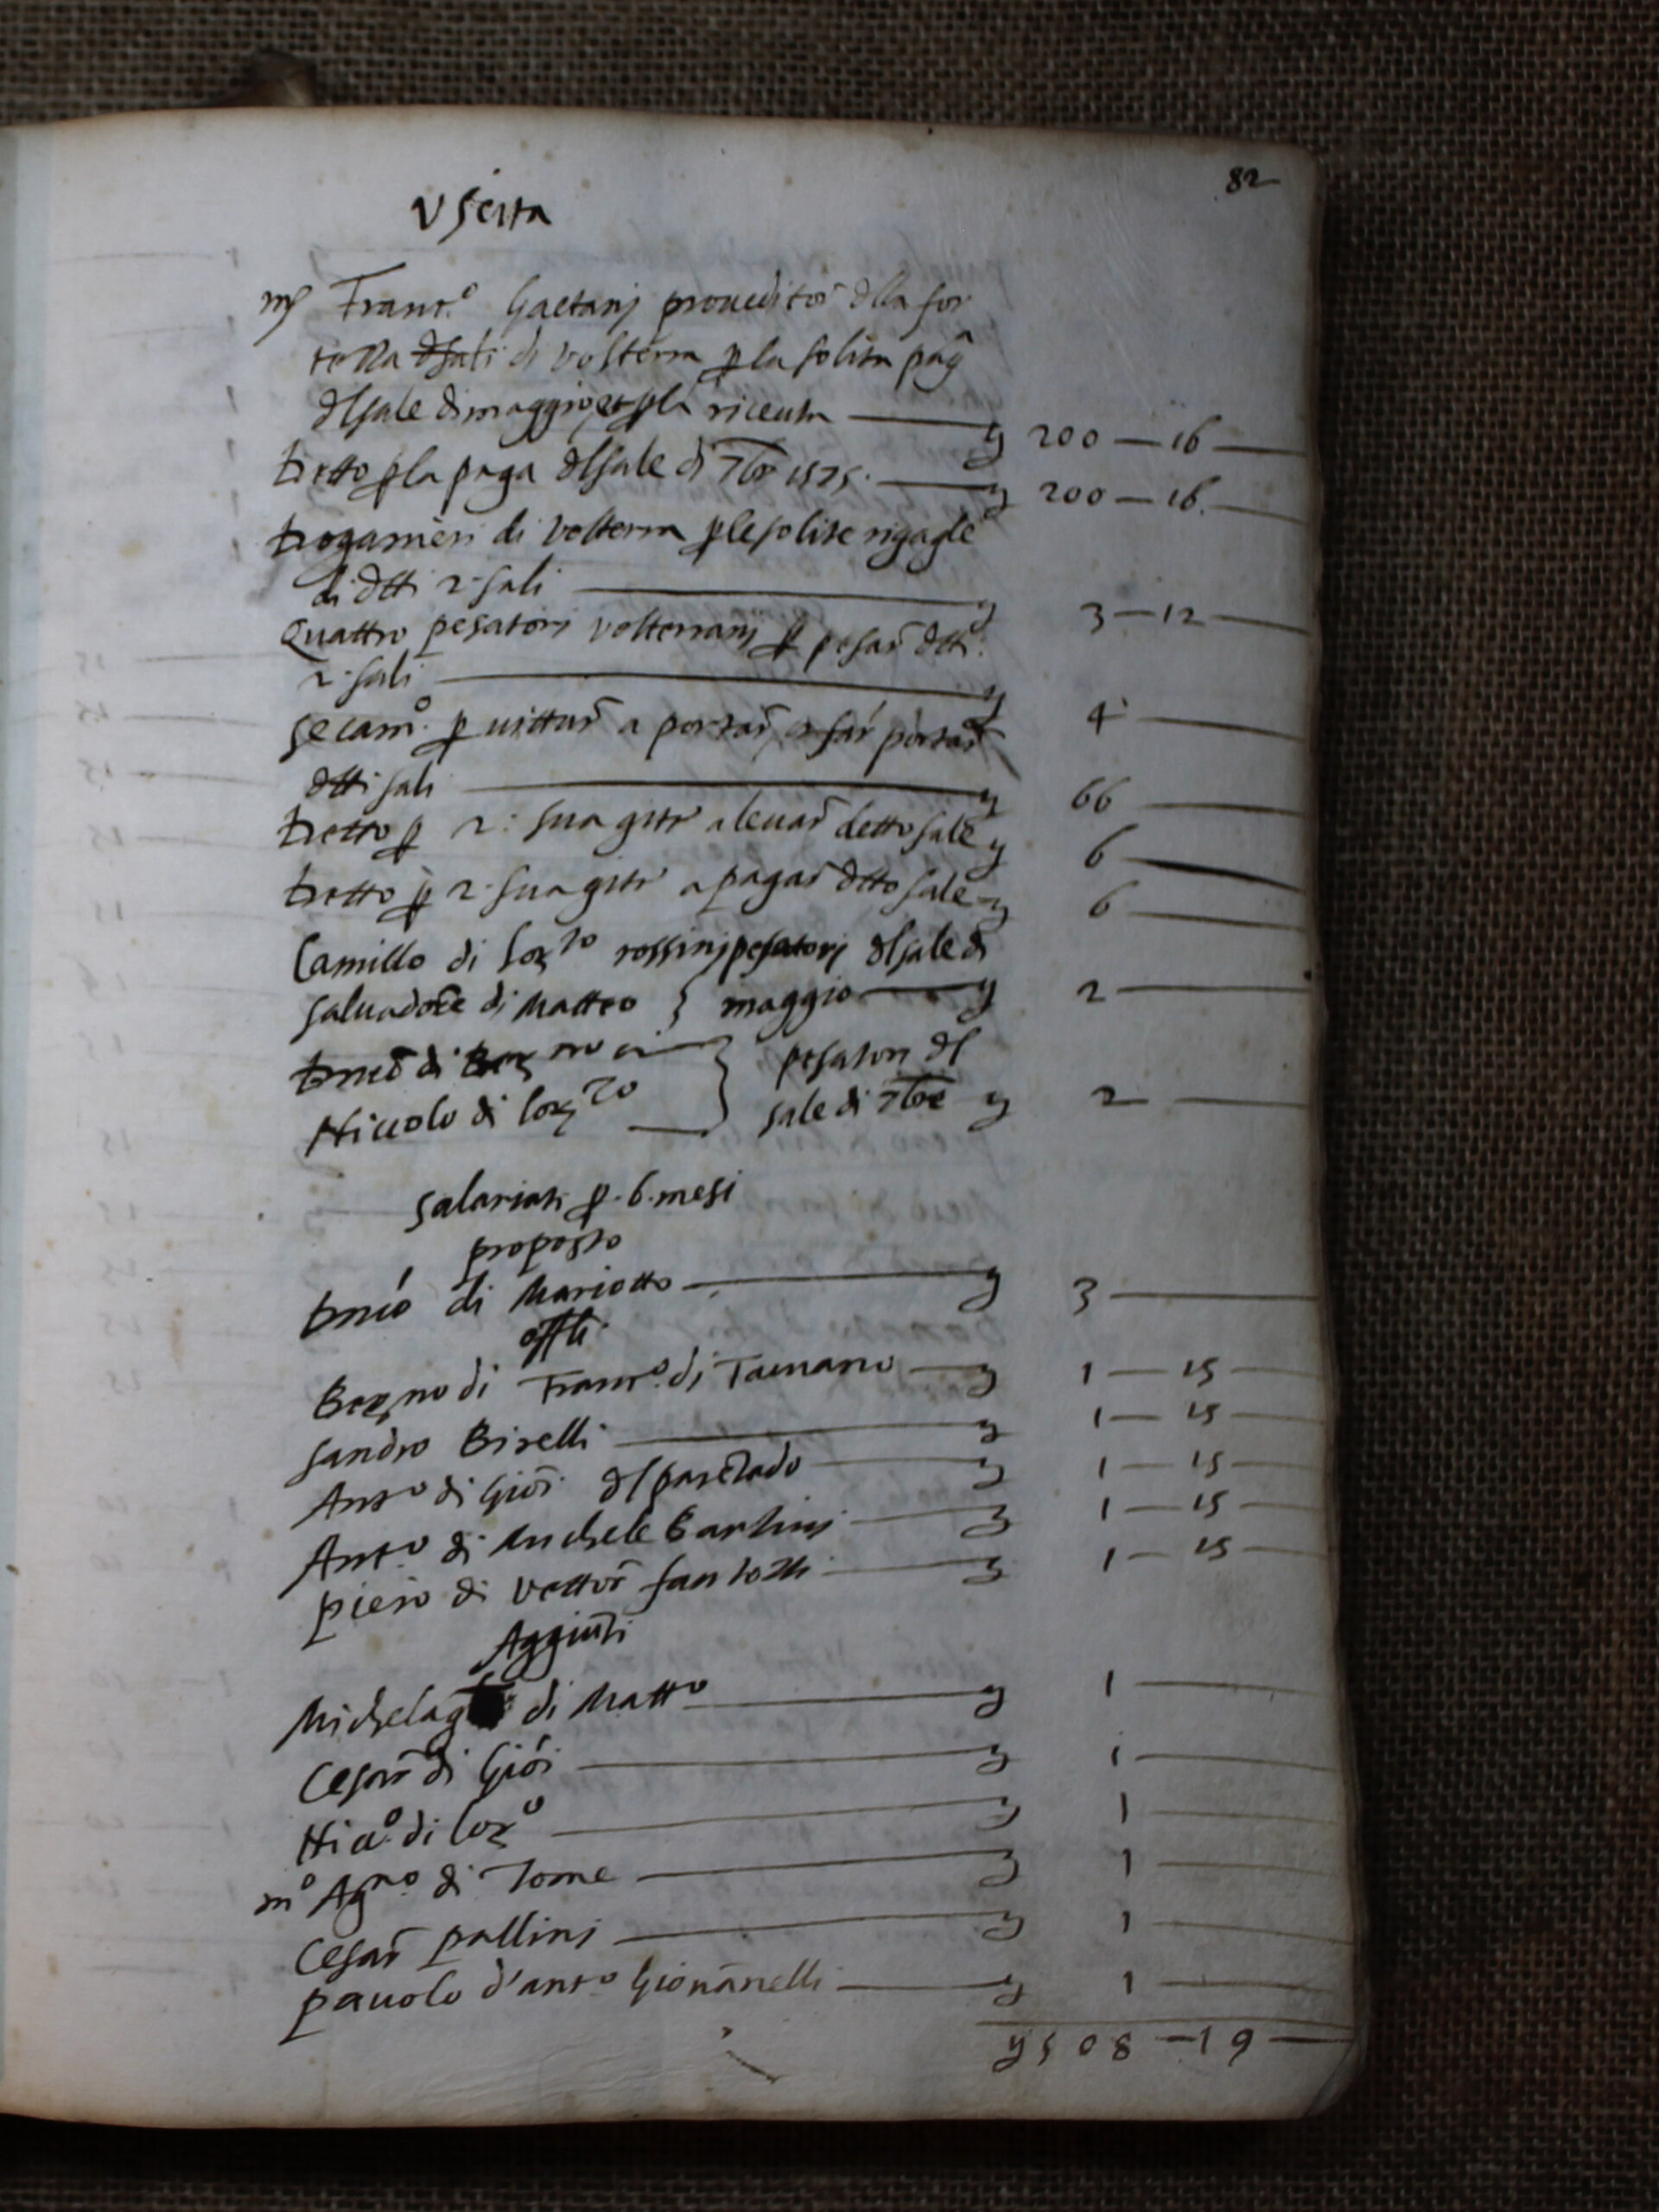 82
Vscita
m Franc.o Gaetanj proueditor dlla for
tezza dsali di volterra p la solita pag
dlsale di maggio, et pla riceuta — 200 — 16 —
Detto pla paga dlsale di 7bre 1575. — 200 — 16. —
Doganieri di volterra p le solite rigaglie
di dtti 2 sali — 3 — 12 —
Quattro pesatorj volterranj p pesar dtti
2 sali — 4 —
Se cam.o p vittur a portar, et far portar
dtti sali — 66 —
Detto p 2: sua gite a leuar detto sale 6 —
Detto p 2. sua gite a pagar dtto sale 6 —
Camillo di Lorzo rossinj pesatorj dlsale di
Saluadore di Matteo } maggio — 2 —
Dnico di Berno — } pesatori dl
Niccolo di Lorzo — } sale di 7bre 2 —
Salariati p. 6. mesi
proposto
Dnico di Mariotto — 3 —
offli
Berno di Franc.o di — 1 — 15 —
Sandro Birelli — 1 — 15 —
Ant.o di Gioi dl paretado — 1 — 15 —
Ant.o di Michele Bartinj — 1 — 15 —
piero di vettor fantozzi — 1 — 15
Aggiuti
Michelag di Matt.o — 1 —
Cesar di Gioi — 1 —
Nic.o di Lor.o — 1 —
m.o Ag.no di Tome — 1 —
Cesar pallinj — 1 —
pauolo d'ant.o Giouanelli — 1 —
508 — 19 —